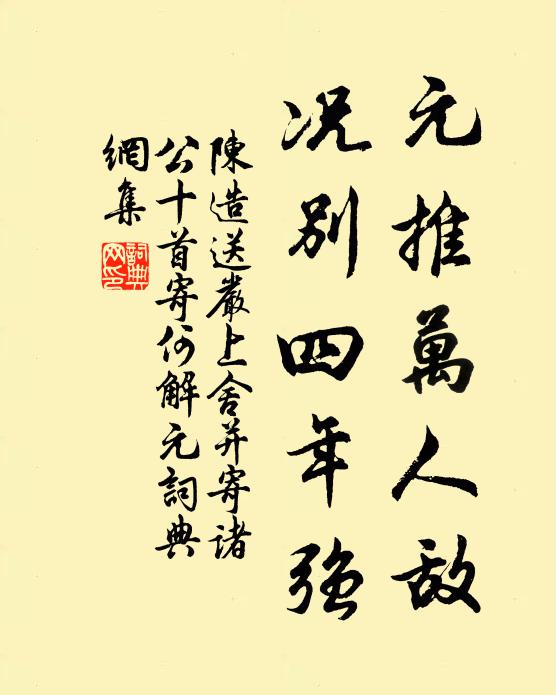 元推萬人敵
况別四年强
陳造送嚴上舍并寄諸
公十首寄何解元詞典
網集
詞典網印